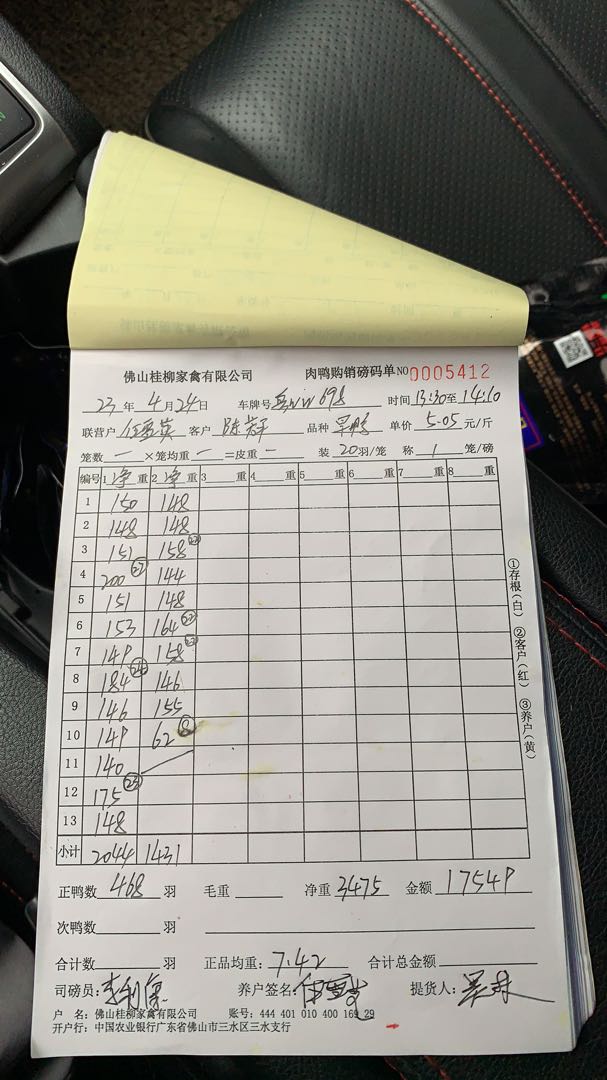 佛山桂柳家禽有限公司 肉鸭购销磅码单 NO 0005412
23 年 4 月 24 日 车牌号 698 时间 13:30 至 14:10
联营户 客户 陈 品种 单价 5.05 元/斤
笼数 一 ×笼均重 一 =皮重 一 装 20 羽/笼 称 1 笼/磅
编号 1 净 重 2 净 重 3 重 4 重 5 重 6 重 7 重 8 重
1 150 148
2 148 148
3 151 158
4 200 144
5 151 148
6 153 164
7 149 158
8 184 146
9 146 155
10 149 62 ⑧
11 140
12 175
13 148
小计 2044 1431
①存根(白) ②客户(红) ③养户(黄)
正鸭数 468 羽 毛重 净重 3475 金额 17549
次鸭数 羽
合计数 羽 正品均重: 7.42 合计总金额
司磅员: 养户签名: 提货人:
户 名: 佛山桂柳家禽有限公司 账号: 444 401 010 400 169 29
开户行: 中国农业银行广东省佛山市三水区三水支行